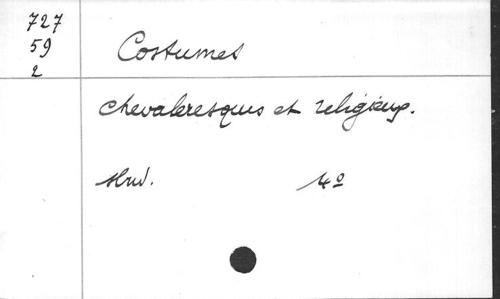 727
59
2
Costumes
chevaleresques et religieux.
4º